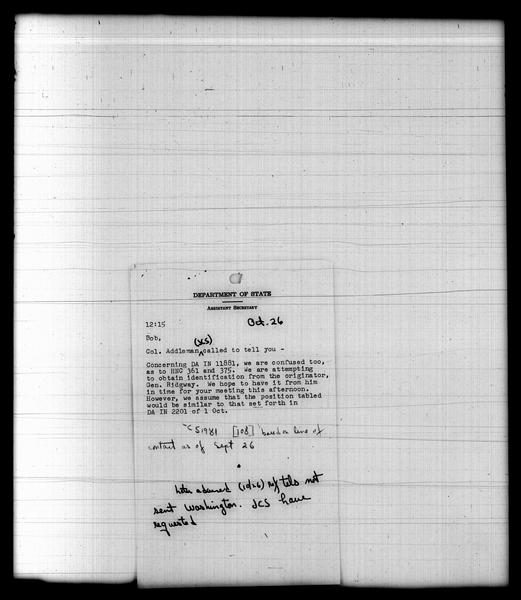 DEPARTMENT OF STATE
ASSISTANT SECRETARY
12:15 Oct. 26
Bob, (JCS)
Col. Addleman called to tell you -
Concerning DA IN 11881, we are confused too,
as to HNC 361 and 375. We are attempting
to obtain identification from the originator,
Gen. Ridgway. We hope to have it from him
in time for your meeting this afternoon.
However, we assume that the position tabled
would be similar to that set forth in
DA IN 2201 of 1 Oct.
[108] based on line of
contact as of Sept 26
(10/26) tels not
sent Washington. JCS have
requested